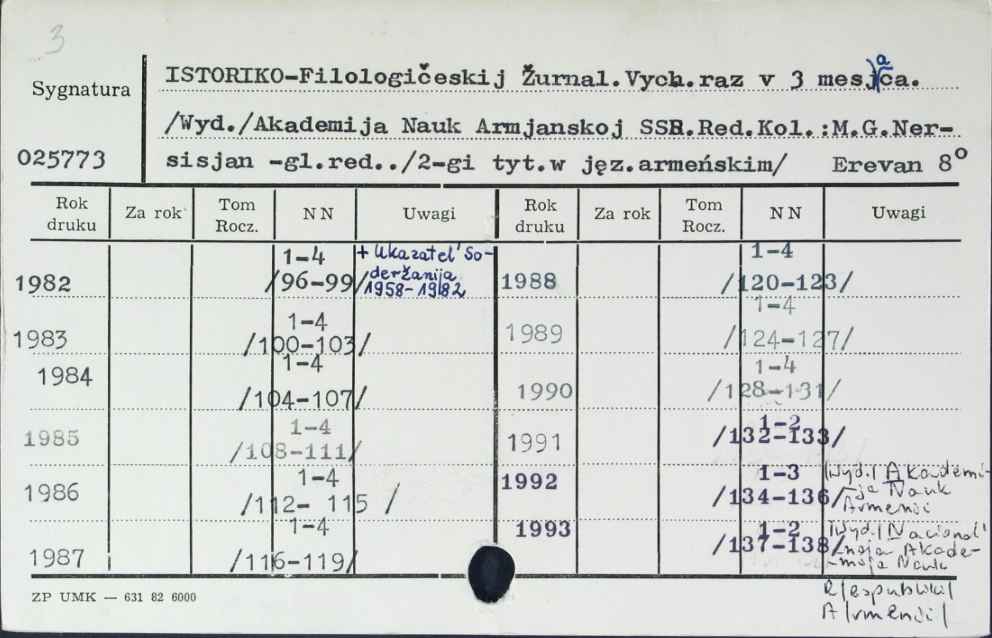 3
Sygnatura
025773
ISTORIKO-Filologičeskij Žurnal.Vych.raz v 3 mesjaca.
/Wyd./Akademija Nauk Armjanskoj SSR.Red.Kol.:M.G.Ner-
sisjan -gl.red../2-gi tyt.w jęz.armeńskim/ Erevan 8°
Rok druku Za rok Tom Rocz. NN Uwagi Rok druku Za rok Tom Rocz. NN Uwagi
1982 1-4 /96-99/ + Ukazatel' So-
deržanija
1958-1982
1983 1-4 /100-103/
1984 1-4 /104-107/
1985 1-4 /108-111/
1986 1-4 /112- 115 /
1987 1-4 /116-119/
1988 1-4 /120-123/
1989 1-4 /124-127/
1990 1-4 /128-131/
1991 1-2 /132-133/
1992 1-3 /134-136/ /Wyd./ Akademi-
ja Nauk
Armenii
1993 1-2 /137-138/ /Wyd./ Nacional'
naja Akade-
mija Nauk
R/espubliki/
A/rmenii/
ZP UMK — 631 82 6000